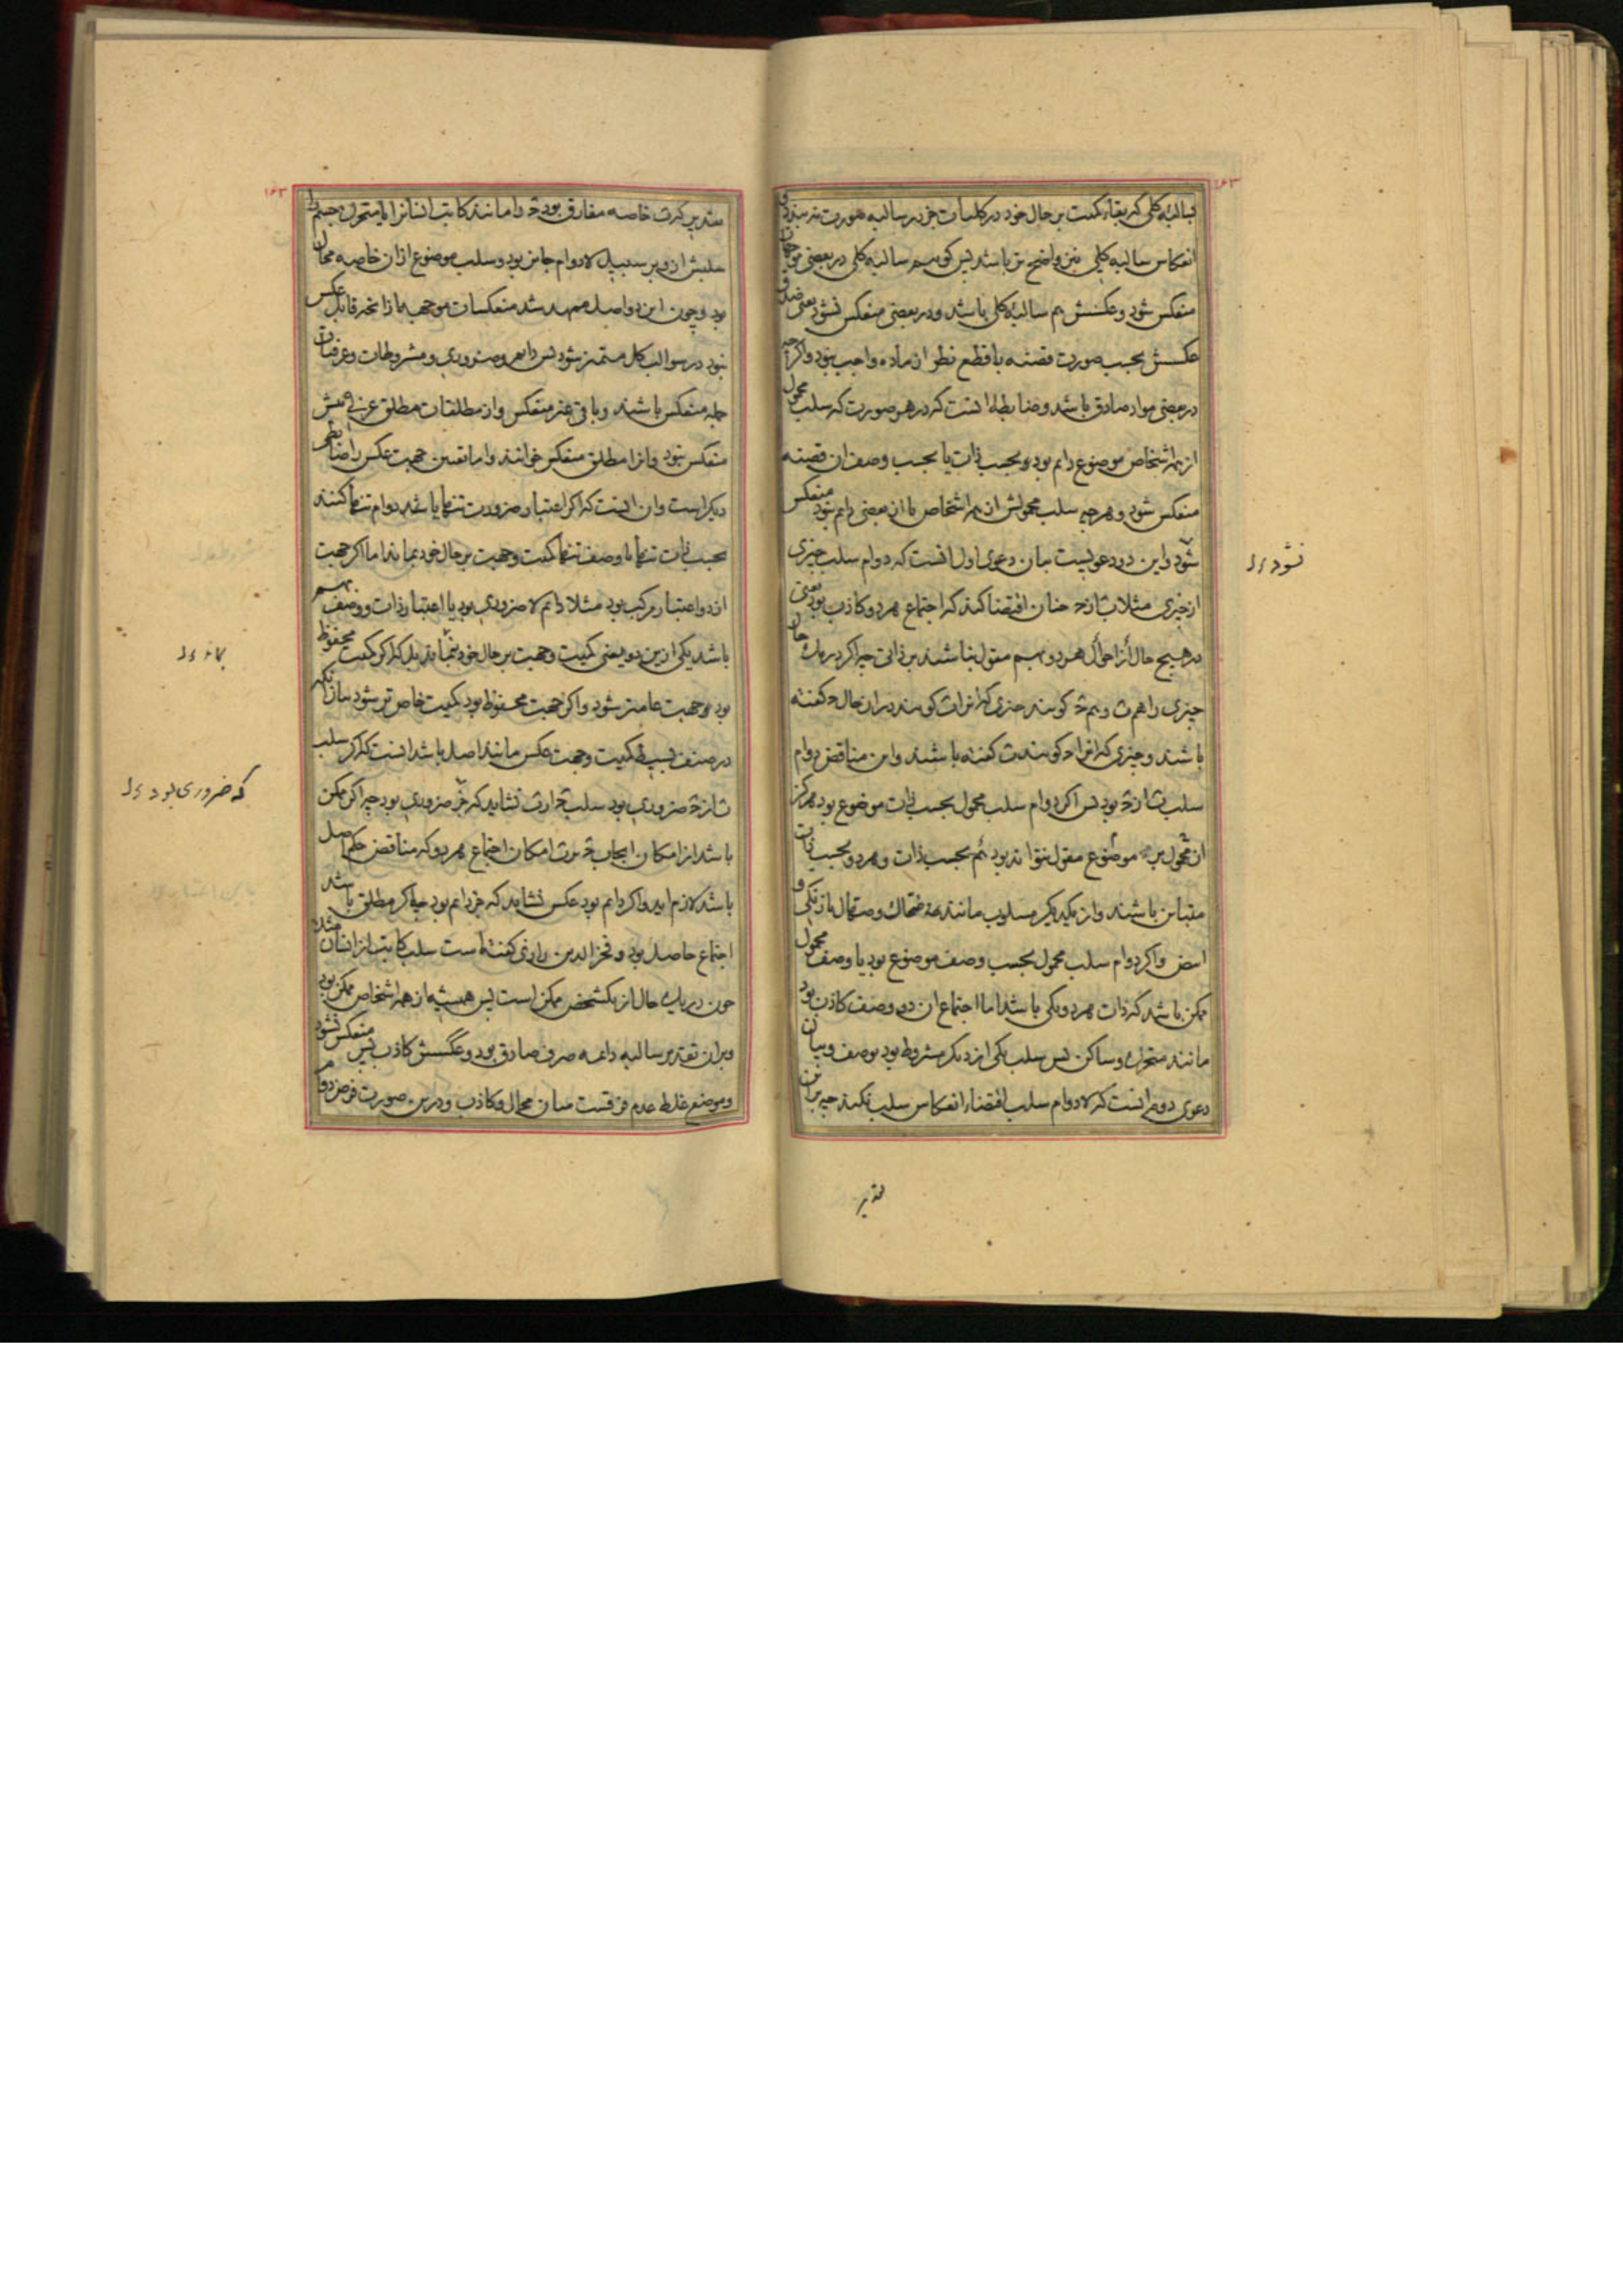 بسالبهٔ کلی که بقاء کمیت بر حال خود در کلیات جز در سالبه صورت نه بندد و
انعکاس سالبه کلی نیز واضح تر باشد پس گوییم سالبه کلی در بعضی موجهات
منعکس شود و عکسش هم سالبهٔ کلی باشد و در بعضی منعکس نشود یعنی صدق
عکسش بحسب صورت قضیه با قطع نظر از ماده واجب نبود و اگرچه
در بعضی مواد صادق باشد و ضابطه انست که در هر صورت که سلب محمول
از همه اشخاص موضوع دایم بود بحسب ذات یا بحسب وصف ان قضیه
منعکس شود و هرچه سلب محمولش از همه اشخاص یا از بعضی دایم نبود منعکس
شود و این دو دعویست بیان دعوی اول انست که دوام سلب چیزی
از چیزی مثلا ب از ج چنان اقتضا کند که اجتماع هر دو کاذب بود یعنی
در هیچ حال از احوال هر دو بهم مقول نباشند بر ذاتی چه اگر در یک حال
چیزی را هم ب و هم ج گویند چیزی که انرا ب گویند در ان حال ج گفته
باشند و چیزی که انرا ج گویند ب گفته باشند و این مناقض دوام
سلب ب از ج بود پس اگر دوام سلب محمول بحسب ذات موضوع بود هرگز
ان محمول بر موضوع مقول نتواند بود هم بحسب ذات و هر دو بحسب ذات
متباین باشند و از یکدیگر مسلوب مانند ضحاک و صهال یا زنگی و
ابیض و اگر دوام سلب محمول بحسب وصف موضوع بود یا وصف محمول
ممکن باشد که ذات هر دو یکی باشد اما اجتماع ان دو وصف کاذب بود
مانند متحرک و ساکن پس سلب یکی از دیگر مشروط بود بوصف و بیان
دعوی دوم انست که لادوام سلب اقتضاء انعکاس سلب نکند چه بر ان
نشود ل
تقدیر
۱۶۳
تقدیر که ب خاصه مفارق بود ج را مانند کاتب انسانرا یا متحرک جسم را
سلبش از و بر سبیل لادوام جایز بود و سلب موضوع از ان خاصه محال
بود و چون این دو اصل ممهد شد منعکسات موجهه از انچه قابل عکس
نبود در سوالب کلی متمیز شود پس دایم و ضروری و مشروطات و عرفیات
جمله منعکس باشند و باقی غیر منعکس و از مطلقات مطلق عرفی بیش
منعکس نبود و انرا مطلق منعکس خوانند و اما تعیین جهت عکس را ضابطه
دیگر است و ان انست که اگر اعتبار ضرورت تنها باشد یا دوام تنها کنند
بحسب ذات تنها یا وصف تنها کمیت و جهت بر حال خود بماند اما اگر جهت
از دو اعتبار مرکب بود مثلا دایم لا ضروری بود یا اعتبار ذات و وصف بهم
باشد یکی ازین دو یعنی کمیت و جهت بر حال خود نماند بل که اگر کمیت محفوظ
بود جهت عامتر شود و اگر جهت محفوظ بود کمیت خاص تر شود بیان انکه
در صنف بسیط کمیت و جهت عکس مانند اصل باشد انست که اگر سلب
ب از ج ضروری بود سلب ج از ب نشاید که جز ضروری بود چه اگر ممکن
باشد از امکان ایجاب ج بر ب امکان اجتماع هر دو که مناقض حکم اصل
باشد لازم اید و اگر دایم بود عکس نشاید که جز دایم بود چه اگر مطلق باشد
اجتماع حاصل بود و فخر الدین رازی گفته است سلب کاتب از انسان مثلا
چون در یک حال از یک شخص ممکن است پس همیشه از همه اشخاص ممکن بود
و بر ان تقدیر سالبه دایمه صرف صادق بود و عکسش کاذب پس منعکس نشود
و موضع غلط عدم فرقست میان محال و کاذب و درین صورت فرض دوام
که ضروری بود ل
۱۶۳